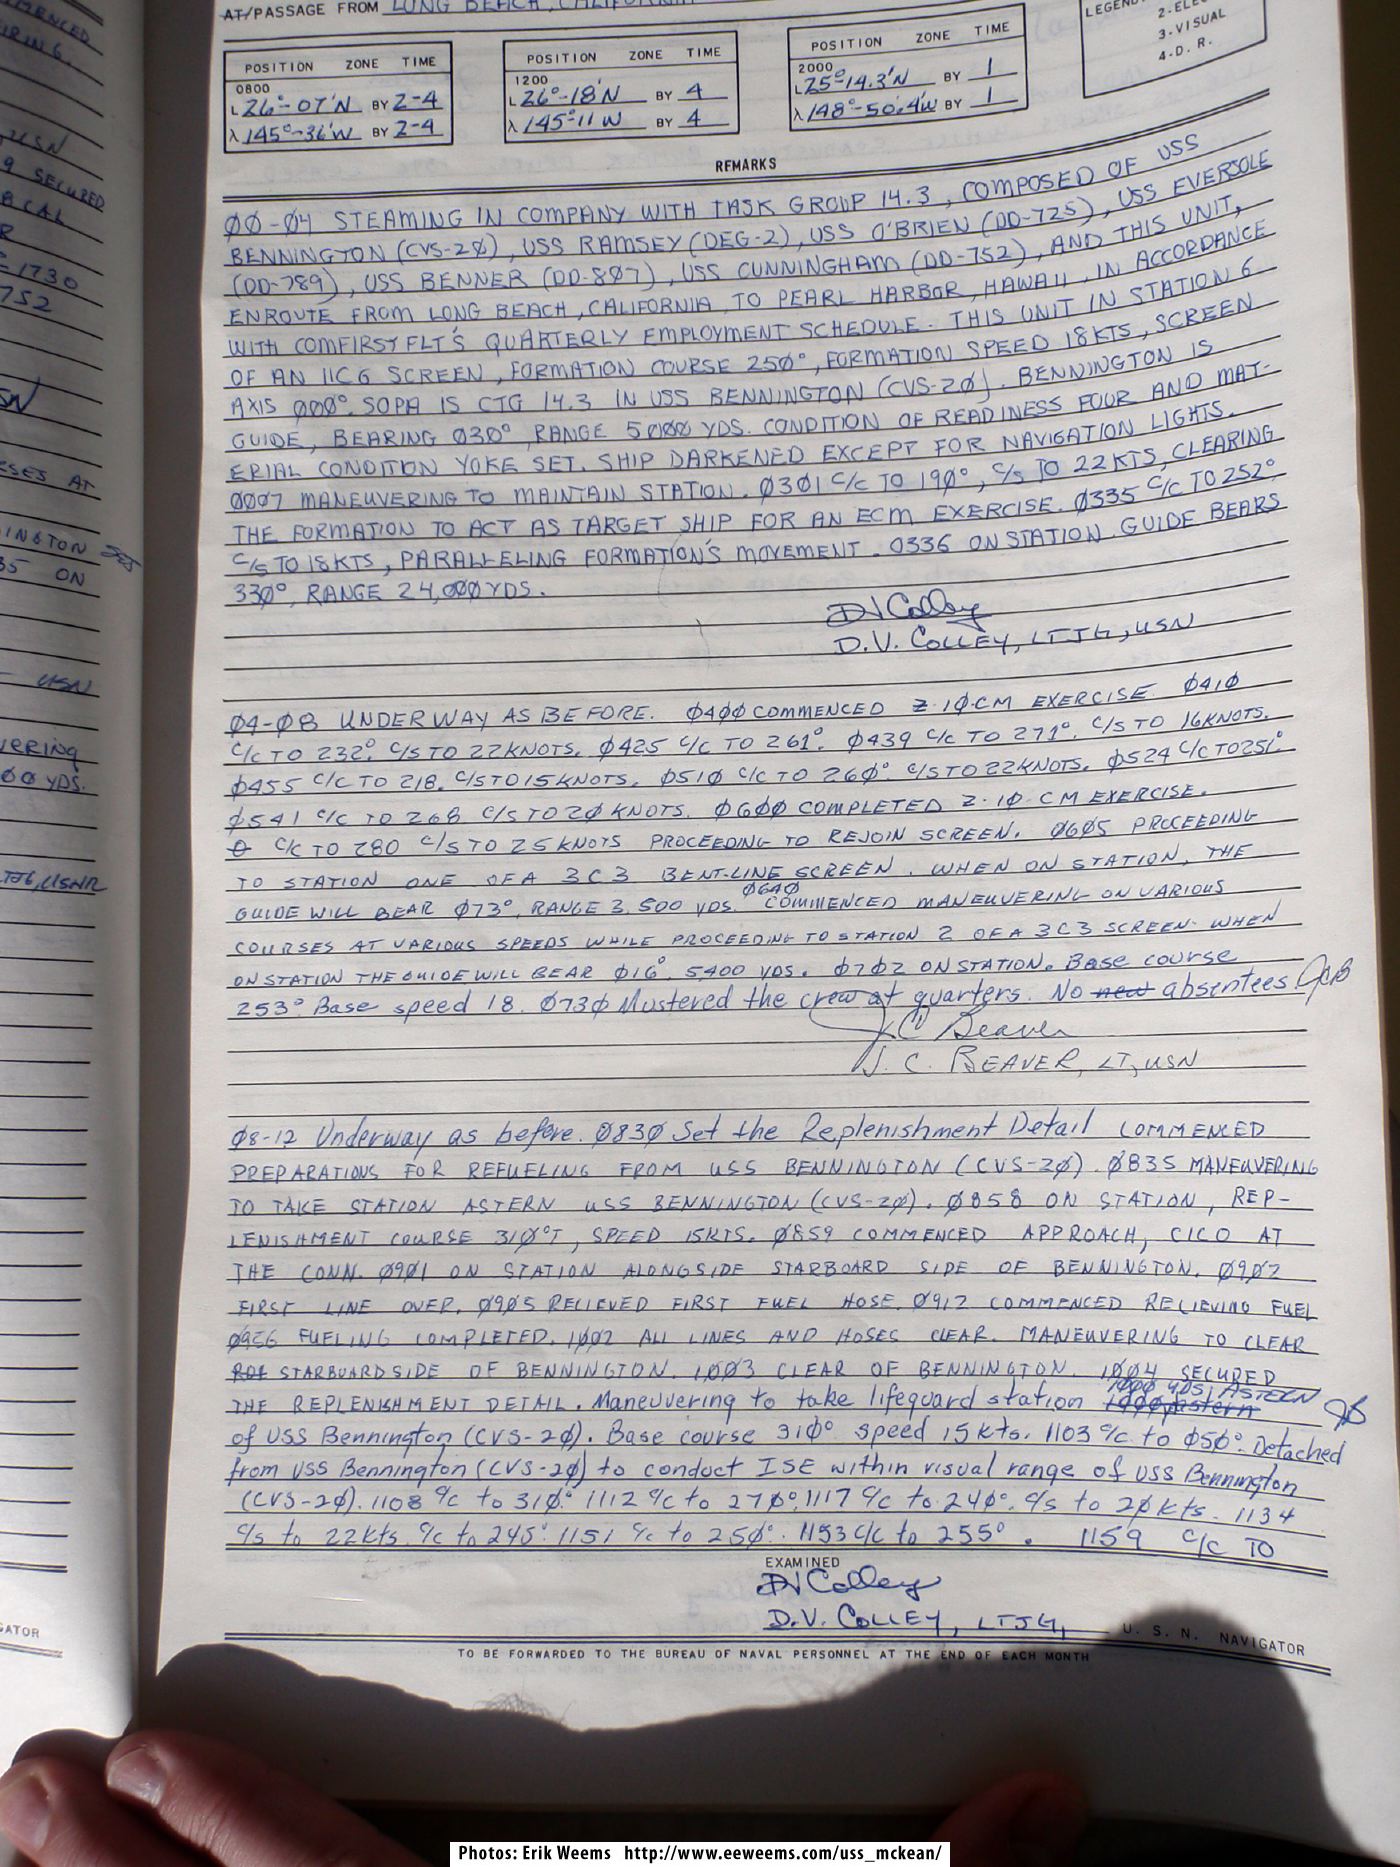 AT/PASSAGE FROM LONG BEACH, CALIFORNIA
LEGEND
3.VISUAL
4-D. R.
POSITION ZONE TIME
0800
L 26°-07'N BY 2-4
λ 145°-36'W BY 2-4
POSITION ZONE TIME
1200
L 26°-18'N BY 4
λ 145°11'W BY 4
POSITION ZONE TIME
2000
L 25°-14.3'N BY 1
λ 148°-50.4'W BY 1
REMARKS
00-04 STEAMING IN COMPANY WITH TASK GROUP 14.3, COMPOSED OF USS
BENNINGTON (CVS-20), USS RAMSEY (DEG-2), USS O'BRIEN (DD-725), USS EVERSOLE
(DD-789), USS BENNER (DD-807), USS CUNNINGHAM (DD-752), AND THIS UNIT,
ENROUTE FROM LONG BEACH, CALIFORNIA TO PEARL HARBOR, HAWAII, IN ACCORDANCE
WITH COMFIRSTFLT'S QUARTERLY EMPLOYMENT SCHEDULE. THIS UNIT IN STATION 6
OF AN 11C6 SCREEN, FORMATION COURSE 250°, FORMATION SPEED 18KTS, SCREEN
AXIS 000°. SOPA IS CTG 14.3 IN USS BENNINGTON (CVS-20). BENNINGTON IS
GUIDE, BEARING 030°, RANGE 5000 YDS. CONDITION OF READINESS FOUR AND MAT-
ERIAL CONDITION YOKE SET. SHIP DARKENED EXCEPT FOR NAVIGATION LIGHTS.
0007 MANEUVERING TO MAINTAIN STATION. 0301 C/C TO 190°, C/S TO 22 KTS, CLEARING
THE FORMATION TO ACT AS TARGET SHIP FOR AN ECM EXERCISE. 0335 C/C TO 252°.
C/S TO 18KTS, PARALLELING FORMATION'S MOVEMENT. 0336 ON STATION. GUIDE BEARS
330°, RANGE 24,000YDS.
DV Colley
D.V. COLLEY, LTJG, USN
04-08 UNDERWAY AS BEFORE. 0400 COMMENCED Z-10-CM EXERCISE. 0410
C/C TO 232°. C/S TO 22KNOTS. 0425 C/C TO 261°. 0439 C/C TO 271°. C/S TO 16KNOTS.
0455 C/C TO 218. C/S TO 15KNOTS. 0510 C/C TO 260°. C/S TO 22KNOTS. 0524 C/C TO 251°.
0541 C/C TO 268 C/S TO 20 KNOTS. 0600 COMPLETED Z-10-CM EXERCISE.
C/C TO 280 C/S TO 25 KNOTS PROCEEDING TO REJOIN SCREEN. 0605 PROCEEDING
TO STATION ONE OF A 3C3 BENT-LINE SCREEN. WHEN ON STATION, THE
GUIDE WILL BEAR 073°, RANGE 3,500 YDS. 0640 COMMENCED MANEUVERING ON VARIOUS
COURSES AT VARIOUS SPEEDS WHILE PROCEEDING TO STATION 2 OF A 3C3 SCREEN. WHEN
ON STATION THE GUIDE WILL BEAR 016°, 5400 YDS. 0702 ON STATION. Base course
253° Base speed 18. 0730 Mustered the crew at quarters. No new absentees JCB
JC Beaver
J. C. BEAVER, LT, USN
08-12 Underway as before. 0830 Set the Replenishment Detail COMMENCED
PREPARATIONS FOR REFUELING FROM USS BENNINGTON (CVS-20). 0835 MANEUVERING
TO TAKE STATION ASTERN USS BENNINGTON (CVS-20). 0858 ON STATION, REP-
LENISHMENT COURSE 310°T, SPEED 15KTS. 0859 COMMENCED APPROACH, CICO AT
THE CONN. 0901 ON STATION ALONGSIDE STARBOARD SIDE OF BENNINGTON. 0902
FIRST LINE OVER. 0905 RECIEVED FIRST FUEL HOSE. 0912 COMMENCED RECIEVING FUEL
0956 FUELING COMPLETED. 1002 ALL LINES AND HOSES CLEAR. MANEUVERING TO CLEAR
STARBOARD SIDE OF BENNINGTON. 1003 CLEAR OF BENNINGTON. 1004 SECURED
THE REPLENISHMENT DETAIL. Maneuvering to take lifeguard station 1000 astern 1000 YDS, ASTERN
of USS Bennington (CVS-20). Base course 310° speed 15 kts. 1103 C/C to 050°. Detached
from USS Bennington (CVS-20) to conduct ISE within visual range of USS Bennington
(CVS-20). 1108 C/C to 310°. 1112 C/C to 270°. 1117 C/C to 240°. C/S to 20 kts. 1134
C/S to 22kts C/C to 245°. 1151 C/C to 250°. 1153 C/C to 255°. 1159 C/C TO
EXAMINED
DV Colley
D.V. COLLEY, LTJG, U. S. N. NAVIGATOR
TO BE FORWARDED TO THE BUREAU OF NAVAL PERSONNEL AT THE END OF EACH MONTH
Photos: Erik Weems http://www.eeweems.com/uss_mckean/